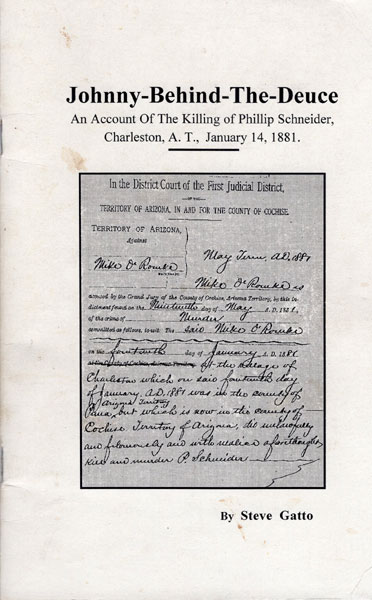 Johnny-Behind-The-Deuce
An Account Of The Killing of Phillip Schneider,
Charleston, A. T., January 14, 1881.
In the District Court of the First Judicial District,
OF THE
TERRITORY OF ARIZONA, IN AND FOR THE COUNTY OF COCHISE.
TERRITORY OF ARIZONA,
Against
Mike O'Rourke
May Term A.D. 1881
Mike O'Rourke is
accused by the Grand Jury of the County of Cochise, Arizona Territory, by this in-
dictment found on the Nineteenth day of May A. D. 1881,
of the crime of Murder
committed as follows, to-wit: The said Mike O'Rourke
on the fourteenth day of January A. D. 1881
at the village of
Charleston which on said fourteenth day
of January, A.D. 1881 was in the county of
Arizona Territory
Pima, but which is now in the county of
Cochise Territory of Arizona, did unlawfully
and feloniously and with malice aforethought
kill and murder P. Schneider
By Steve Gatto